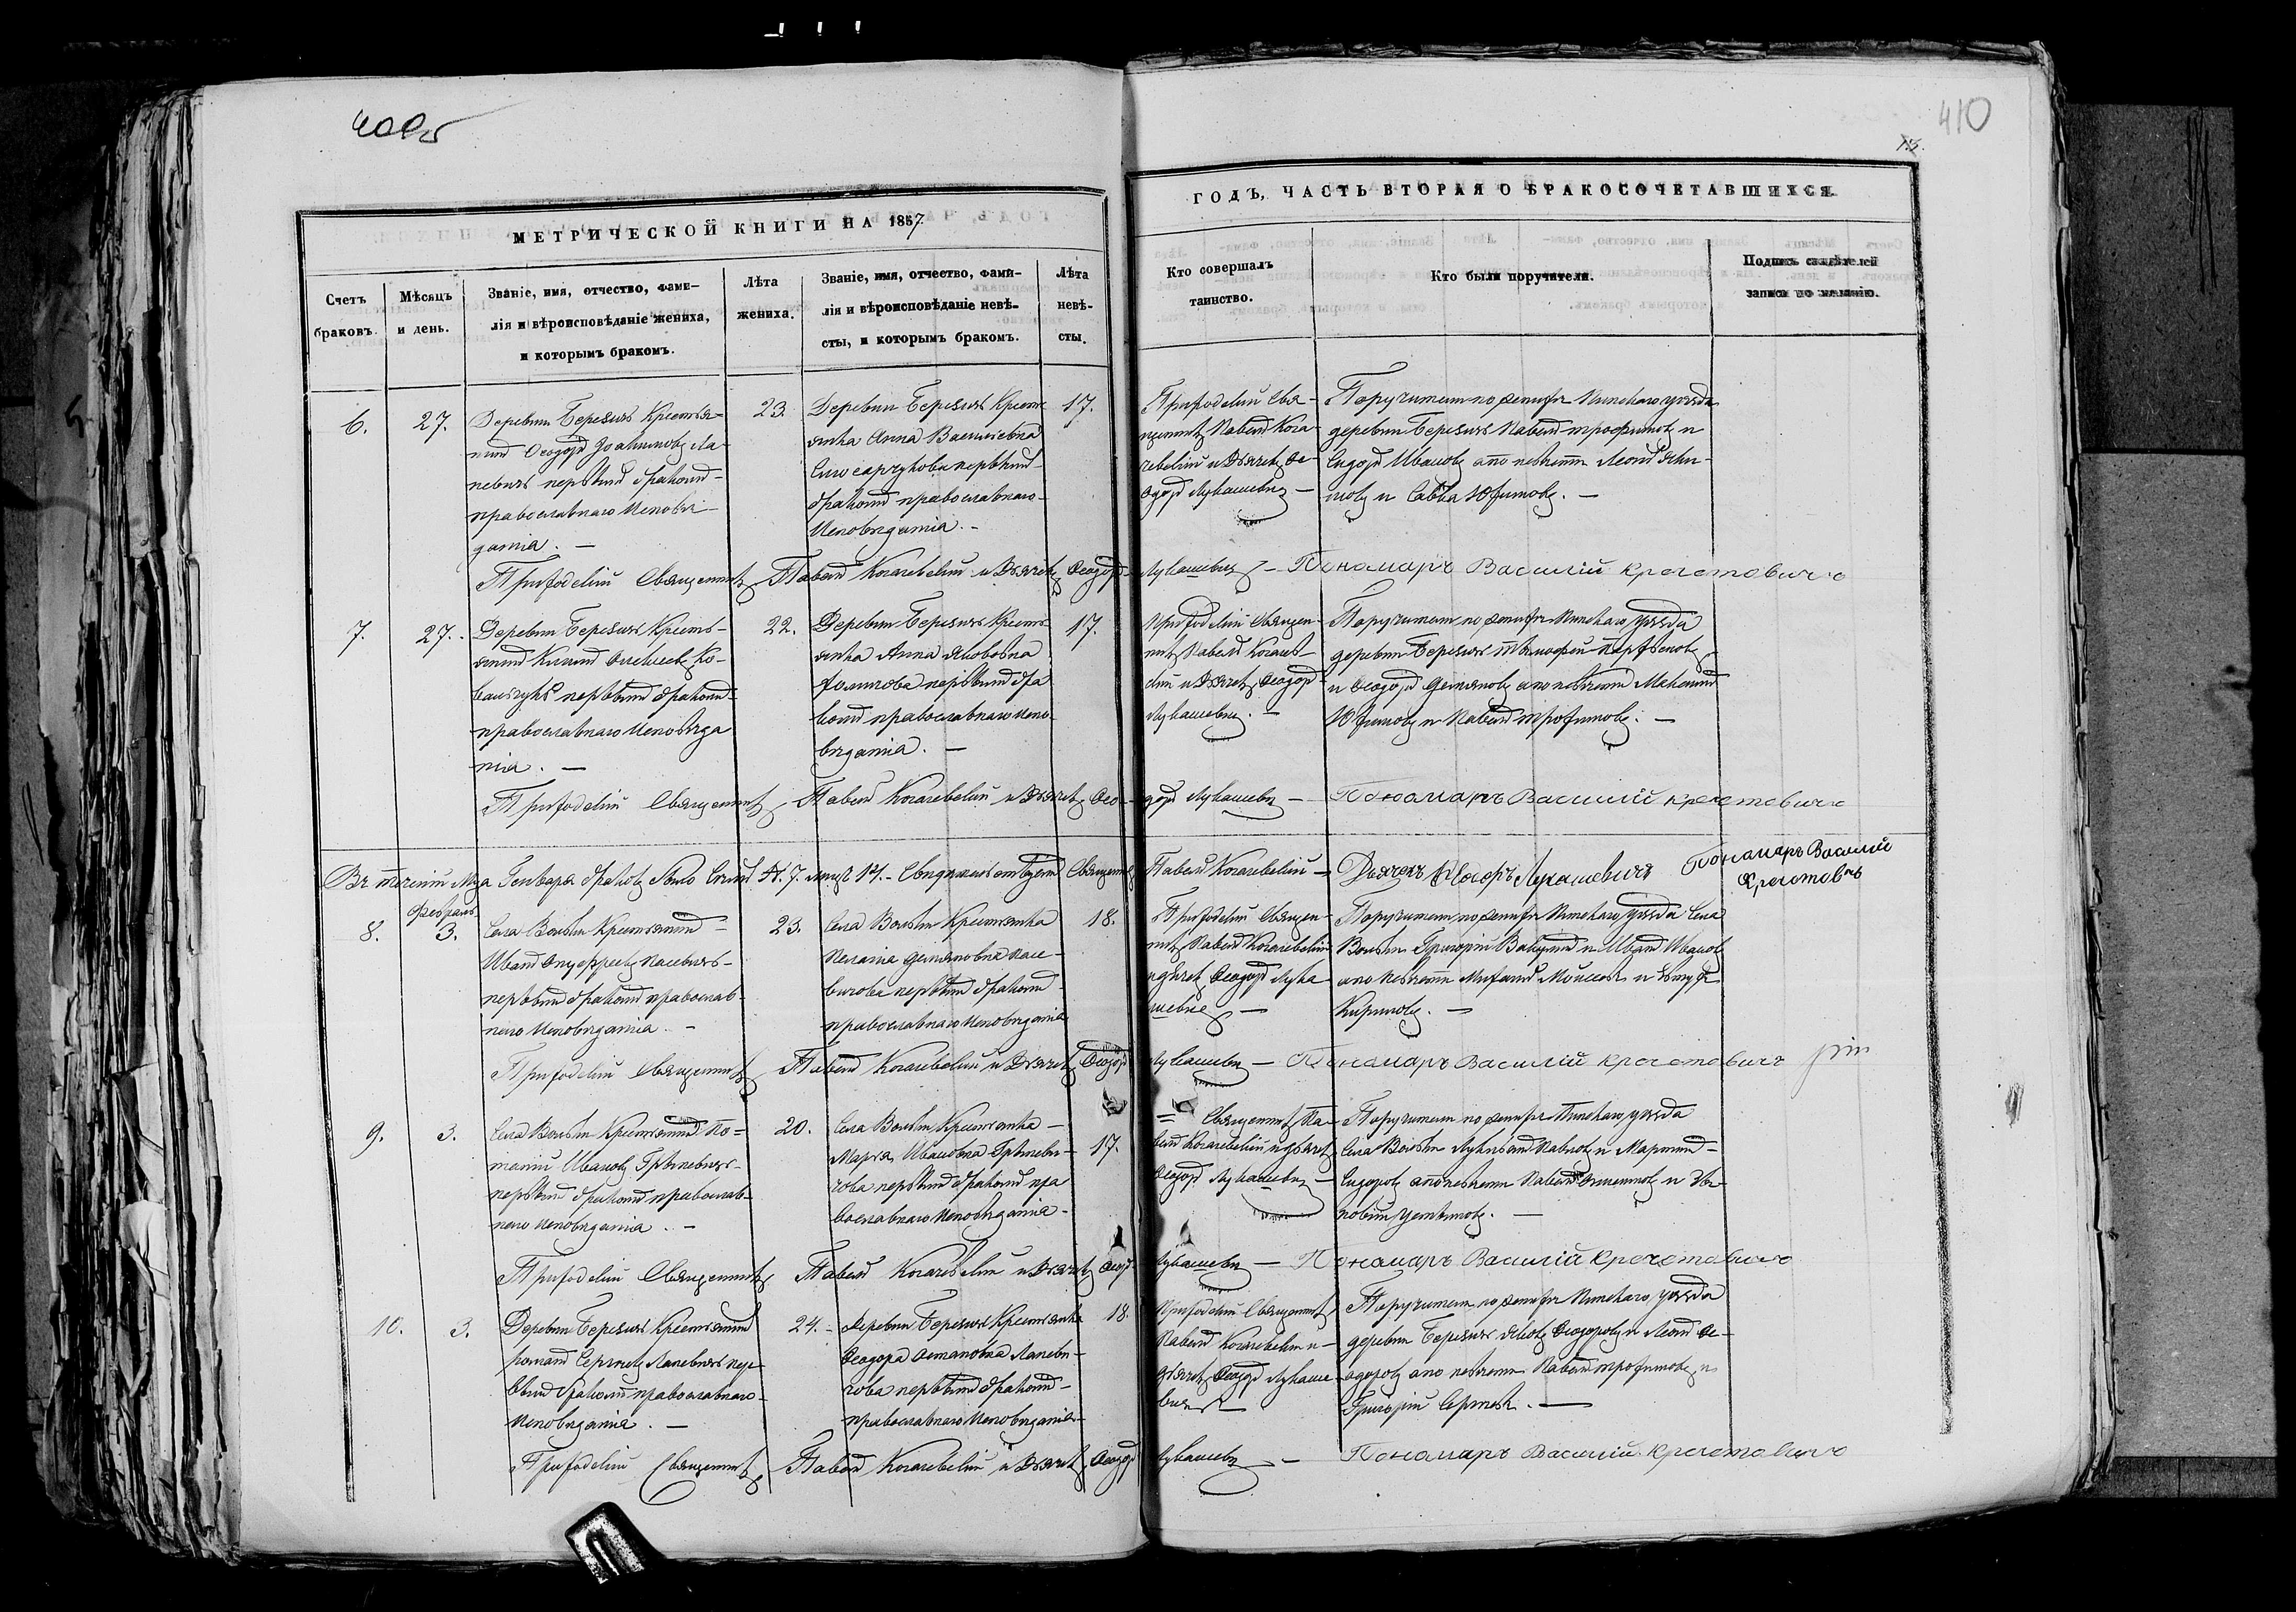 409об
410
75.
МЕТРИЧЕСКОЙ КНИГИ НА 1857.
ГОДЪ, ЧАСТЬ ВТОРАЯ О БРАКОСОЧЕТАВШИХСЯ.
Счетъ
браковъ.
Мѣсяцъ
и день.
Званіе, имя, отчество, фами-
лія и вѣроисповѣданіе жениха,
и которымъ бракомъ.
Лѣта
жениха.
Званіе, имя, отчество, фами-
лія и вѣроисповѣданіе невѣ-
сты, и которымъ бракомъ.
Лѣта
невѣ-
сты.
Кто совершалъ
таинство.
Кто были поручители.
Подпись свидѣтелей
записи по желанію.
6.
27.
Деревни Березичъ Крестья-
нинъ Ѳеодоръ Іоакимовъ Ла-
певичъ первымъ бракомъ
православнаго Исповѣ-
данія. —
23.
Деревни Березичъ Кресть
янка Анна Васильевна
первымъ
бракомъ православнаго
Исповѣданія. —
17.
Приходскій Свя-
щенникъ Павелъ Кога-
чевскій и Дьячекъ Ѳе-
одоръ Лукашевичъ —
Поручители по женихѣ Пинскаго уѣзда
деревни Березичъ Павелъ Трофимовъ и
Сидоръ Ивановъ а по невѣстѣ Леонъ
и Савва Юфимовъ. —
Приходскій Священникъ Павелъ Когачевскій и Дьячекъ Ѳеодоръ Лукашевичъ — Пономаръ Василій Кречетовичъ
7.
27.
Деревни Березичъ Кресть-
янинъ Алексѣевъ Ко-
вальчукъ первымъ бракомъ
православнаго Исповѣда
нія. —
22.
Деревни Березичъ Кресть
янка Анна Якововна
первымъ бра
комъ православнаго Испо-
вѣданія. —
17.
Приходскій Священ-
никъ Павелъ Когачев-
скій и Дьячекъ Ѳеодоръ
Лукашевичъ. —
Поручители по женихѣ Пинскаго уѣзда
деревни Березичъ Тимофей Парфеновъ
и Ѳеодоръ Демяновъ а по невѣстѣ
Юфимовъ и Павелъ Трофимовъ. —
Приходскій Священникъ Павелъ Когачевскій и Дьячекъ Ѳеодоръ Лукашевичъ — Пономаръ Василій Кречетовичъ
Въ теченіи Мца Генваря браковъ было Священникъ Павелъ Когачевскій — Дьячекъ Ѳеодоръ Лукашевичъ Пономаръ Василій
Кречетовичъ
8.
Февраль
3.
Села Вольки Крестьянинъ
Иванъ
первымъ бракомъ православ-
наго Исповѣданія. —
23.
Села Вольки Крестьянка
Пелагія Демяновна
первымъ бракомъ
православнаго Исповѣданія
18.
Приходскій Священ-
никъ Павелъ Когачевскій
и дьячекъ Ѳеодоръ Лука-
шевичъ —
Поручители по женихѣ Пинскаго уѣзда Села
Вольки Григорій и Иванъ Ивановъ
а по невѣстѣ Моисеевъ и
Кириловъ. —
Приходскій Священникъ Павелъ Когачевскій и Дьячекъ Ѳеодоръ Лукашевичъ — Пономаръ Василій Кречетовичъ
9.
3.
Села Вольки Крестьянинъ
Ивановъ
первымъ бракомъ православ-
наго Исповѣданія. —
20.
Села Вольки Крестьянка —
Марья Ивановна
первымъ бракомъ пра
вославнаго Исповѣданія —
17.
Священникъ Па-
велъ Когачевскій и дьячекъ
Ѳеодоръ Лукашевичъ —
Поручители по женихѣ Пинскаго уѣзда
Села Вольки Лукьянъ Павловъ и Мартинъ
Сидоровъ а по невѣстѣ Павелъ и
Приходскій Священникъ Павелъ Когачевскій и Дьячекъ Ѳеодоръ Лукашевичъ — Пономаръ Василій Кречетовичъ
10.
3.
Деревни Березичъ Крестьянинъ
Романъ Сергѣевъ Лапевичъ пер-
вымъ бракомъ православнаго
Исповѣданія. —
24.
Деревни Березичъ Крестьянка
Ѳеодора Лапеви-
чова первымъ бракомъ
православнаго Исповѣданія
18.
Приходскій Священникъ
Павелъ Когачевскій и
дьячекъ Ѳеодоръ Лукаше-
вичъ —
Поручители по женихѣ Пинскаго уѣзда
деревни Березичъ Яковъ Ѳеодоровъ и Леонъ Ѳе-
одоровъ а по невѣстѣ Павелъ Трофимовъ и
Григорій Сергѣевъ. —
Приходскій Священникъ Павелъ Когачевскій и Дьячекъ Ѳеодоръ Лукашевичъ — Пономаръ Василій Кречетовичъ